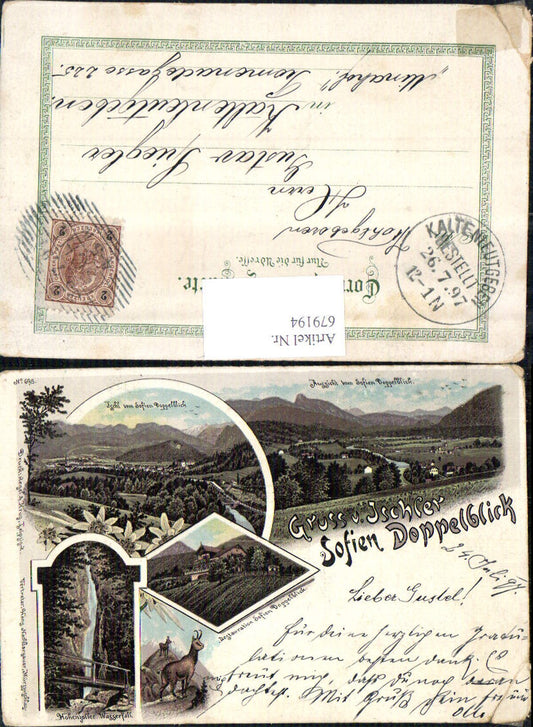 Corr
Nur für die Adresse.
Wohlgeboren
Herrn
Gustav Suegler
in Kaltenleutgeben
225.
KALTENLEUTGEBEN
BESTELLT
26.7.97
12-1N
2
2
Artikel Nr.
679194
No 695.
Ischl vom Sofien Doppelblick
Aussicht vom Sofien Doppelblick.
Gruss v. Ischler
Sofien Doppelblick
Restauration Sofien Doppelblick
Hohenzoller Wasserfall
24. Juli 97.
Lieber Gustel!
Für deine herzlichen Gratu-
lationen besten Dank! Es
freut mich, dass du noch daran
dachtest. Mit Gruß Dein